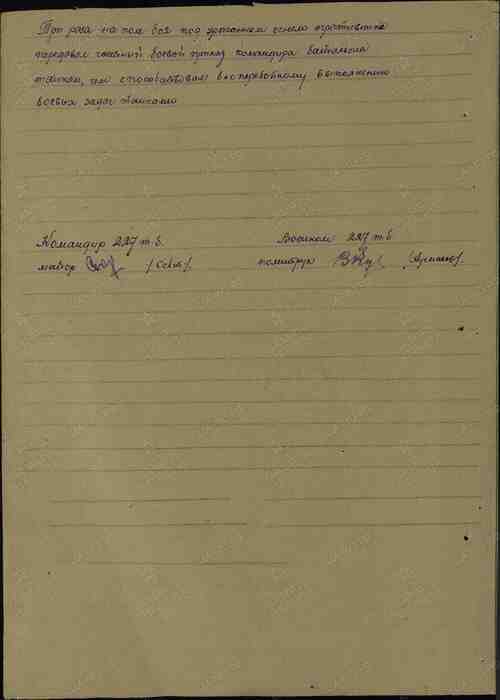 Три раза на поле боя под ураганным огнем противника
передавал личный боевой приказ командира батальона
танкам, чем способствовал бесперебойному выполнению
боевых задач танками
Командир 227 т.б.
Военком 227 т.б.
майор
политрук